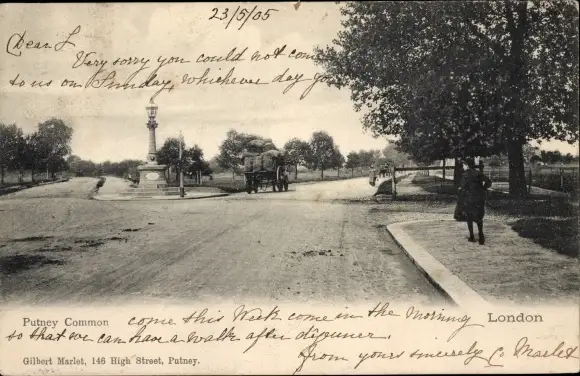 23/5/05
Dear L
Very sorry you could not come
to us on Sunday, whichever day you
Putney Common
London
come this Week come in the Morning
so that we can have a walk after dejeuner.
Gilbert Marlet, 146 High Street, Putney.
from yours sincerely G Marlet